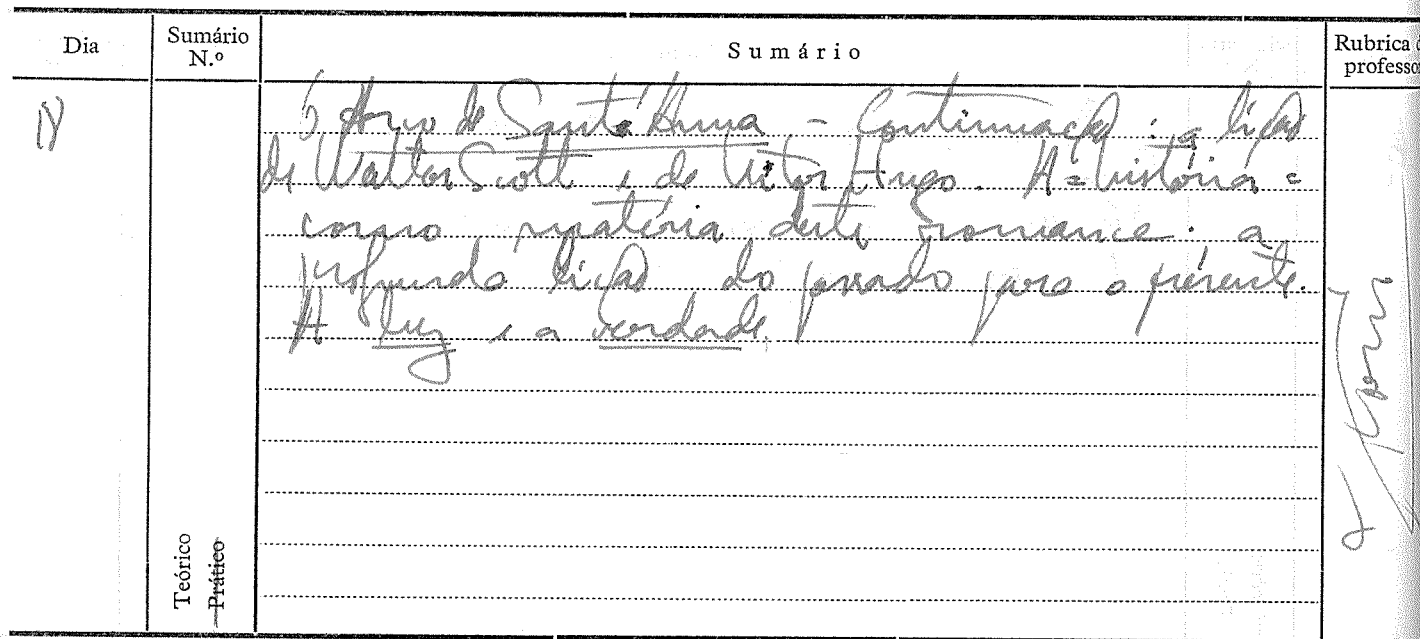 Dia Sumário N.º Sumário Rubrica d
professor
18
O Arco de Sant'Anna - Continuação: a lição
de Walter Scott e de Vitor Hugo. A = história =
como matéria deste romance: a
profunda lição do passado para o presente.
A luz e a verdade.
Teórico
Prático